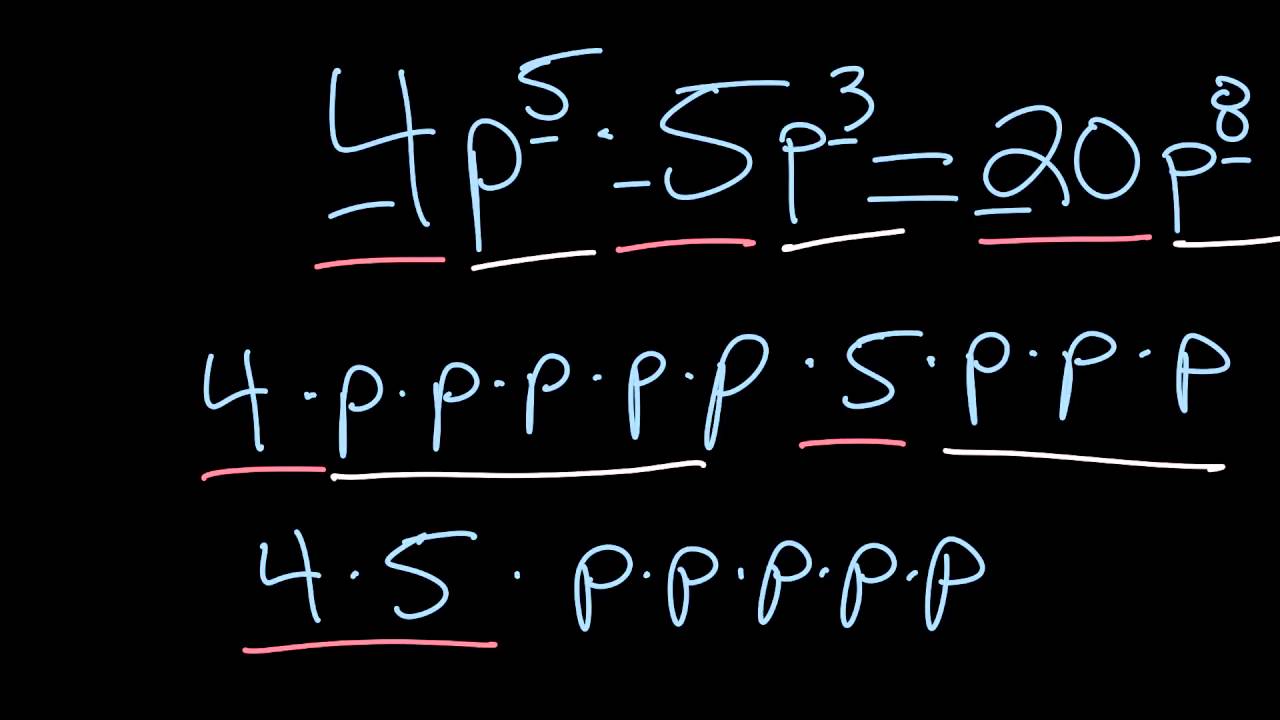 4p⁵ · 5p³ = 20p⁸
4 · p · p · p · p · p · 5 · p · p · p
4 · 5 · p · p · p · p · p